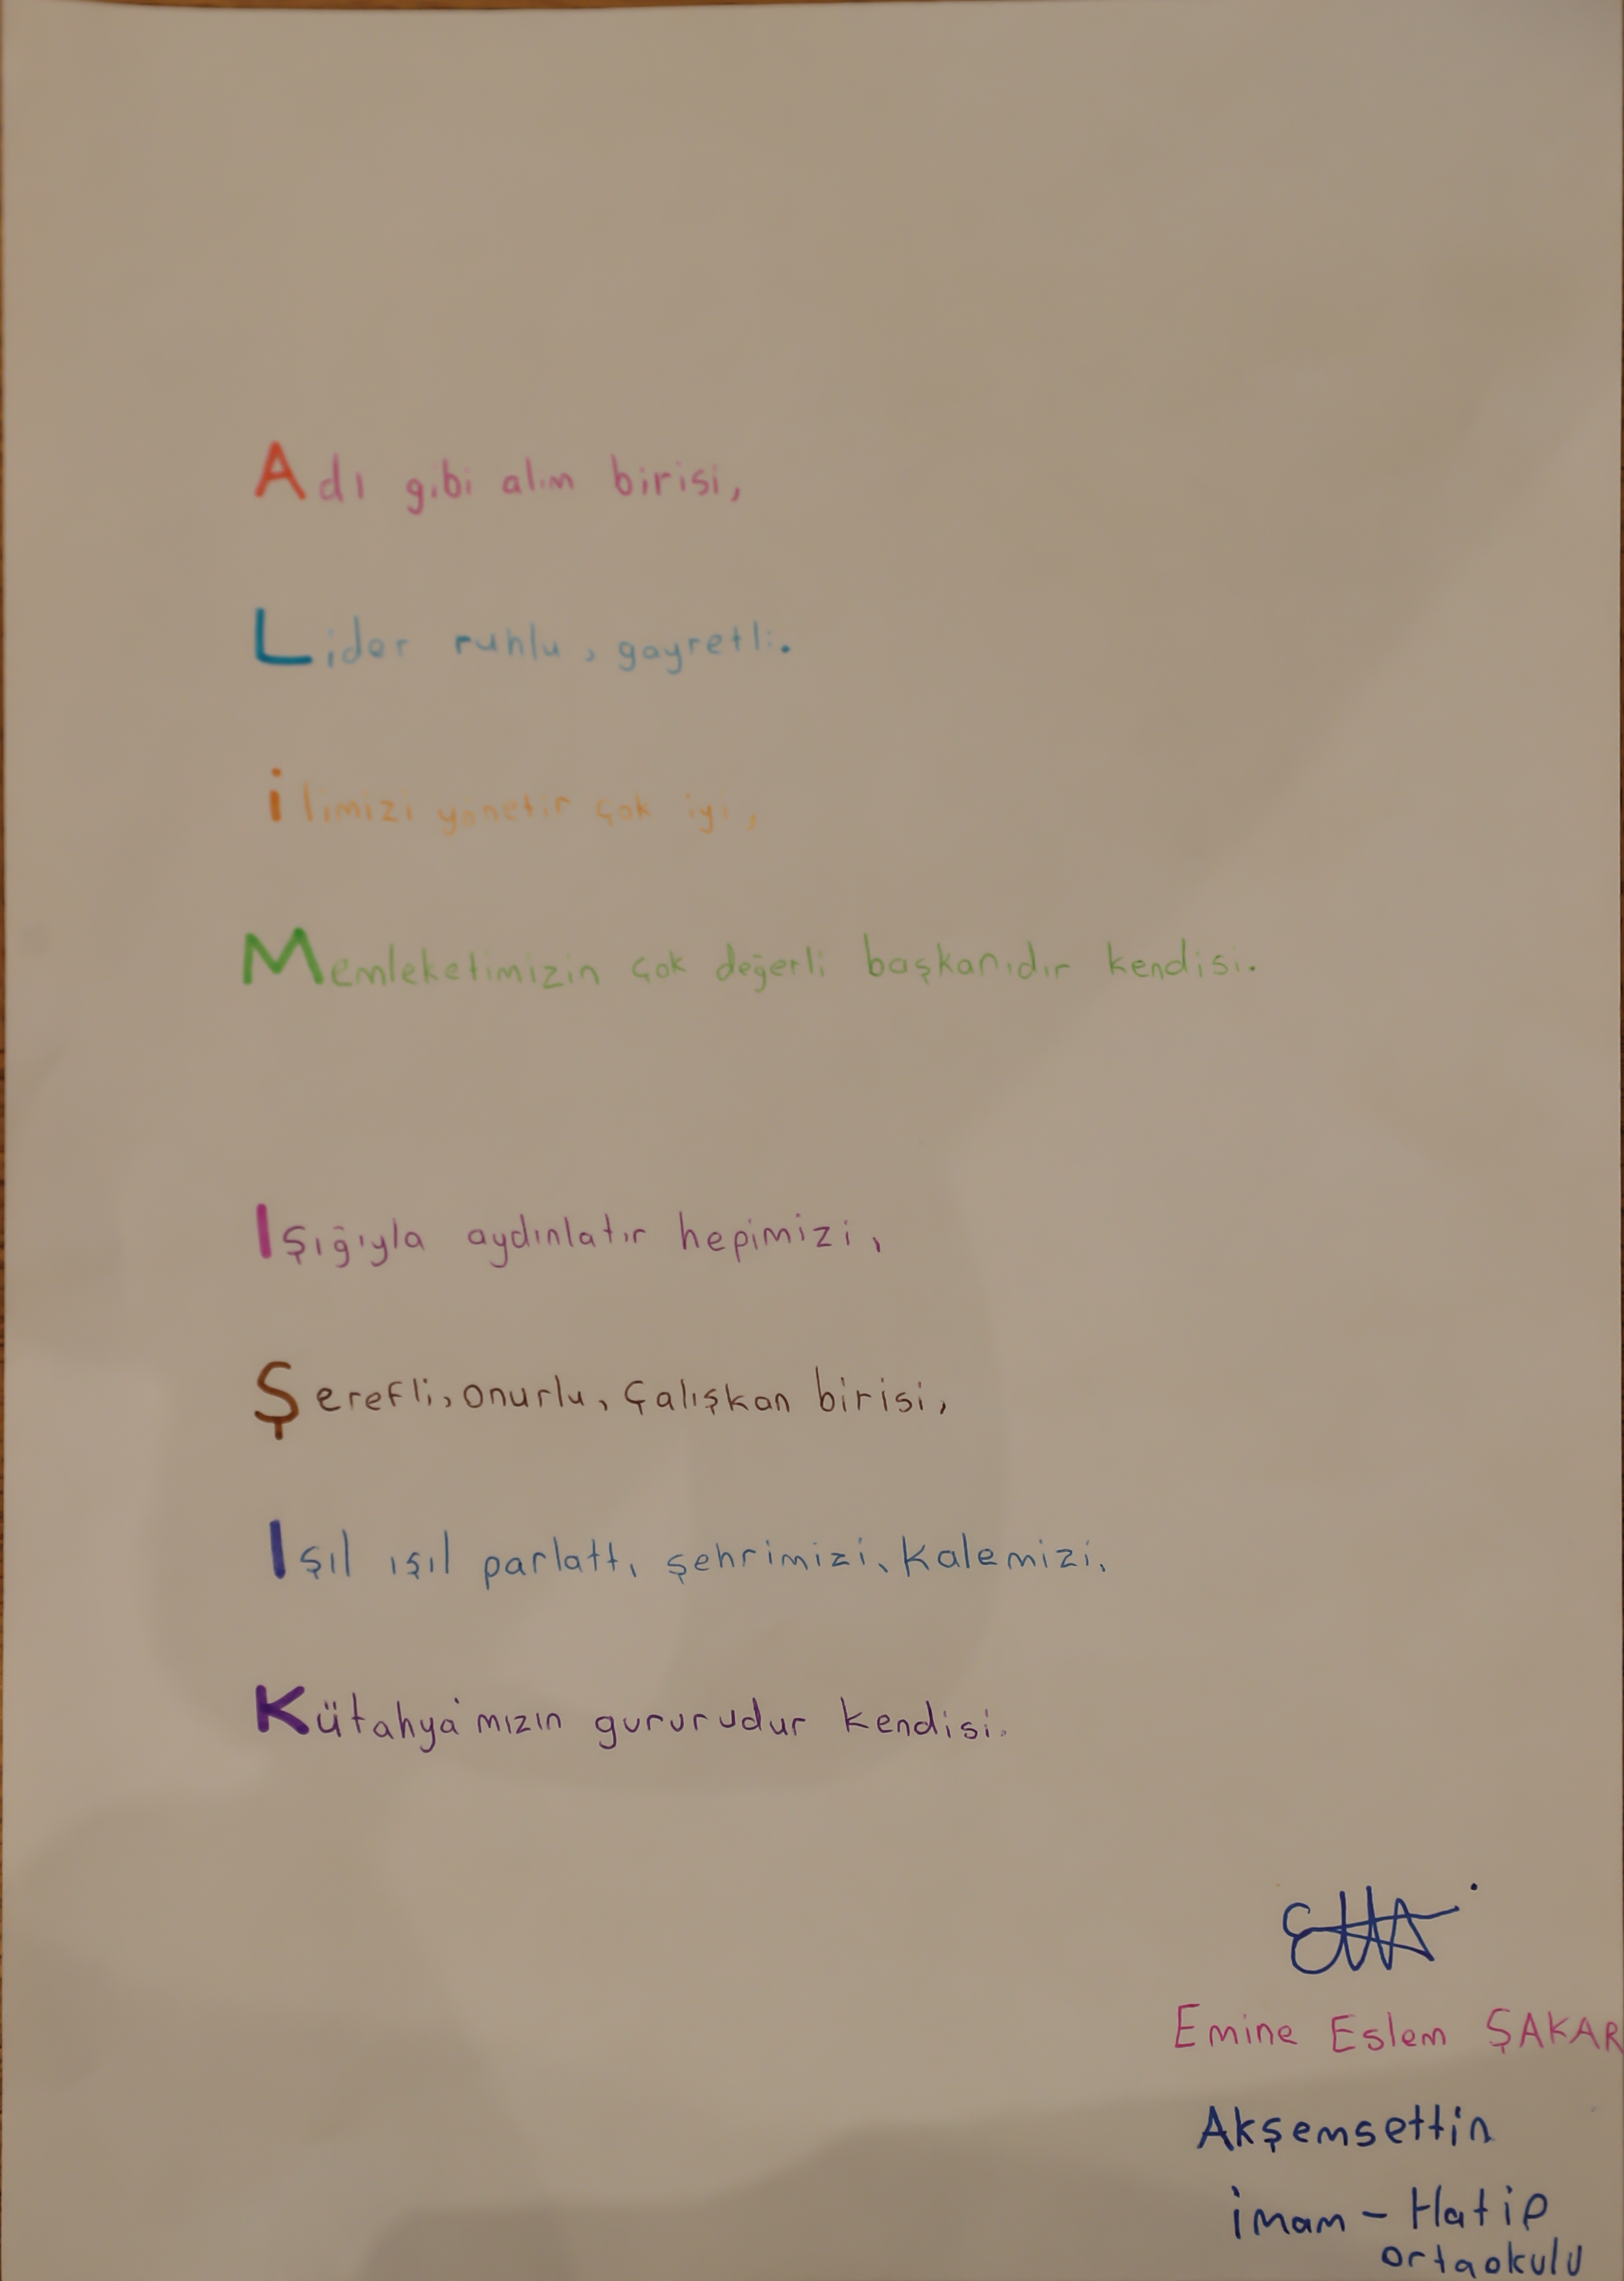 Adı gibi alım birisi,
Lider ruhlu, gayretli.
ilimizi yönetir çok iyi,
Memleketimizin çok değerli başkanıdır kendisi.
Işığıyla aydınlatır hepimizi,
Şerefli, onurlu, çalışkan birisi,
Işıl ışıl parlattı, şehrimizi, kalemizi.
Kütahya'mızın gururudur kendisi.
Emine Eslem ŞAKAR
Akşemsettin
imam - Hatip
ortaokulu